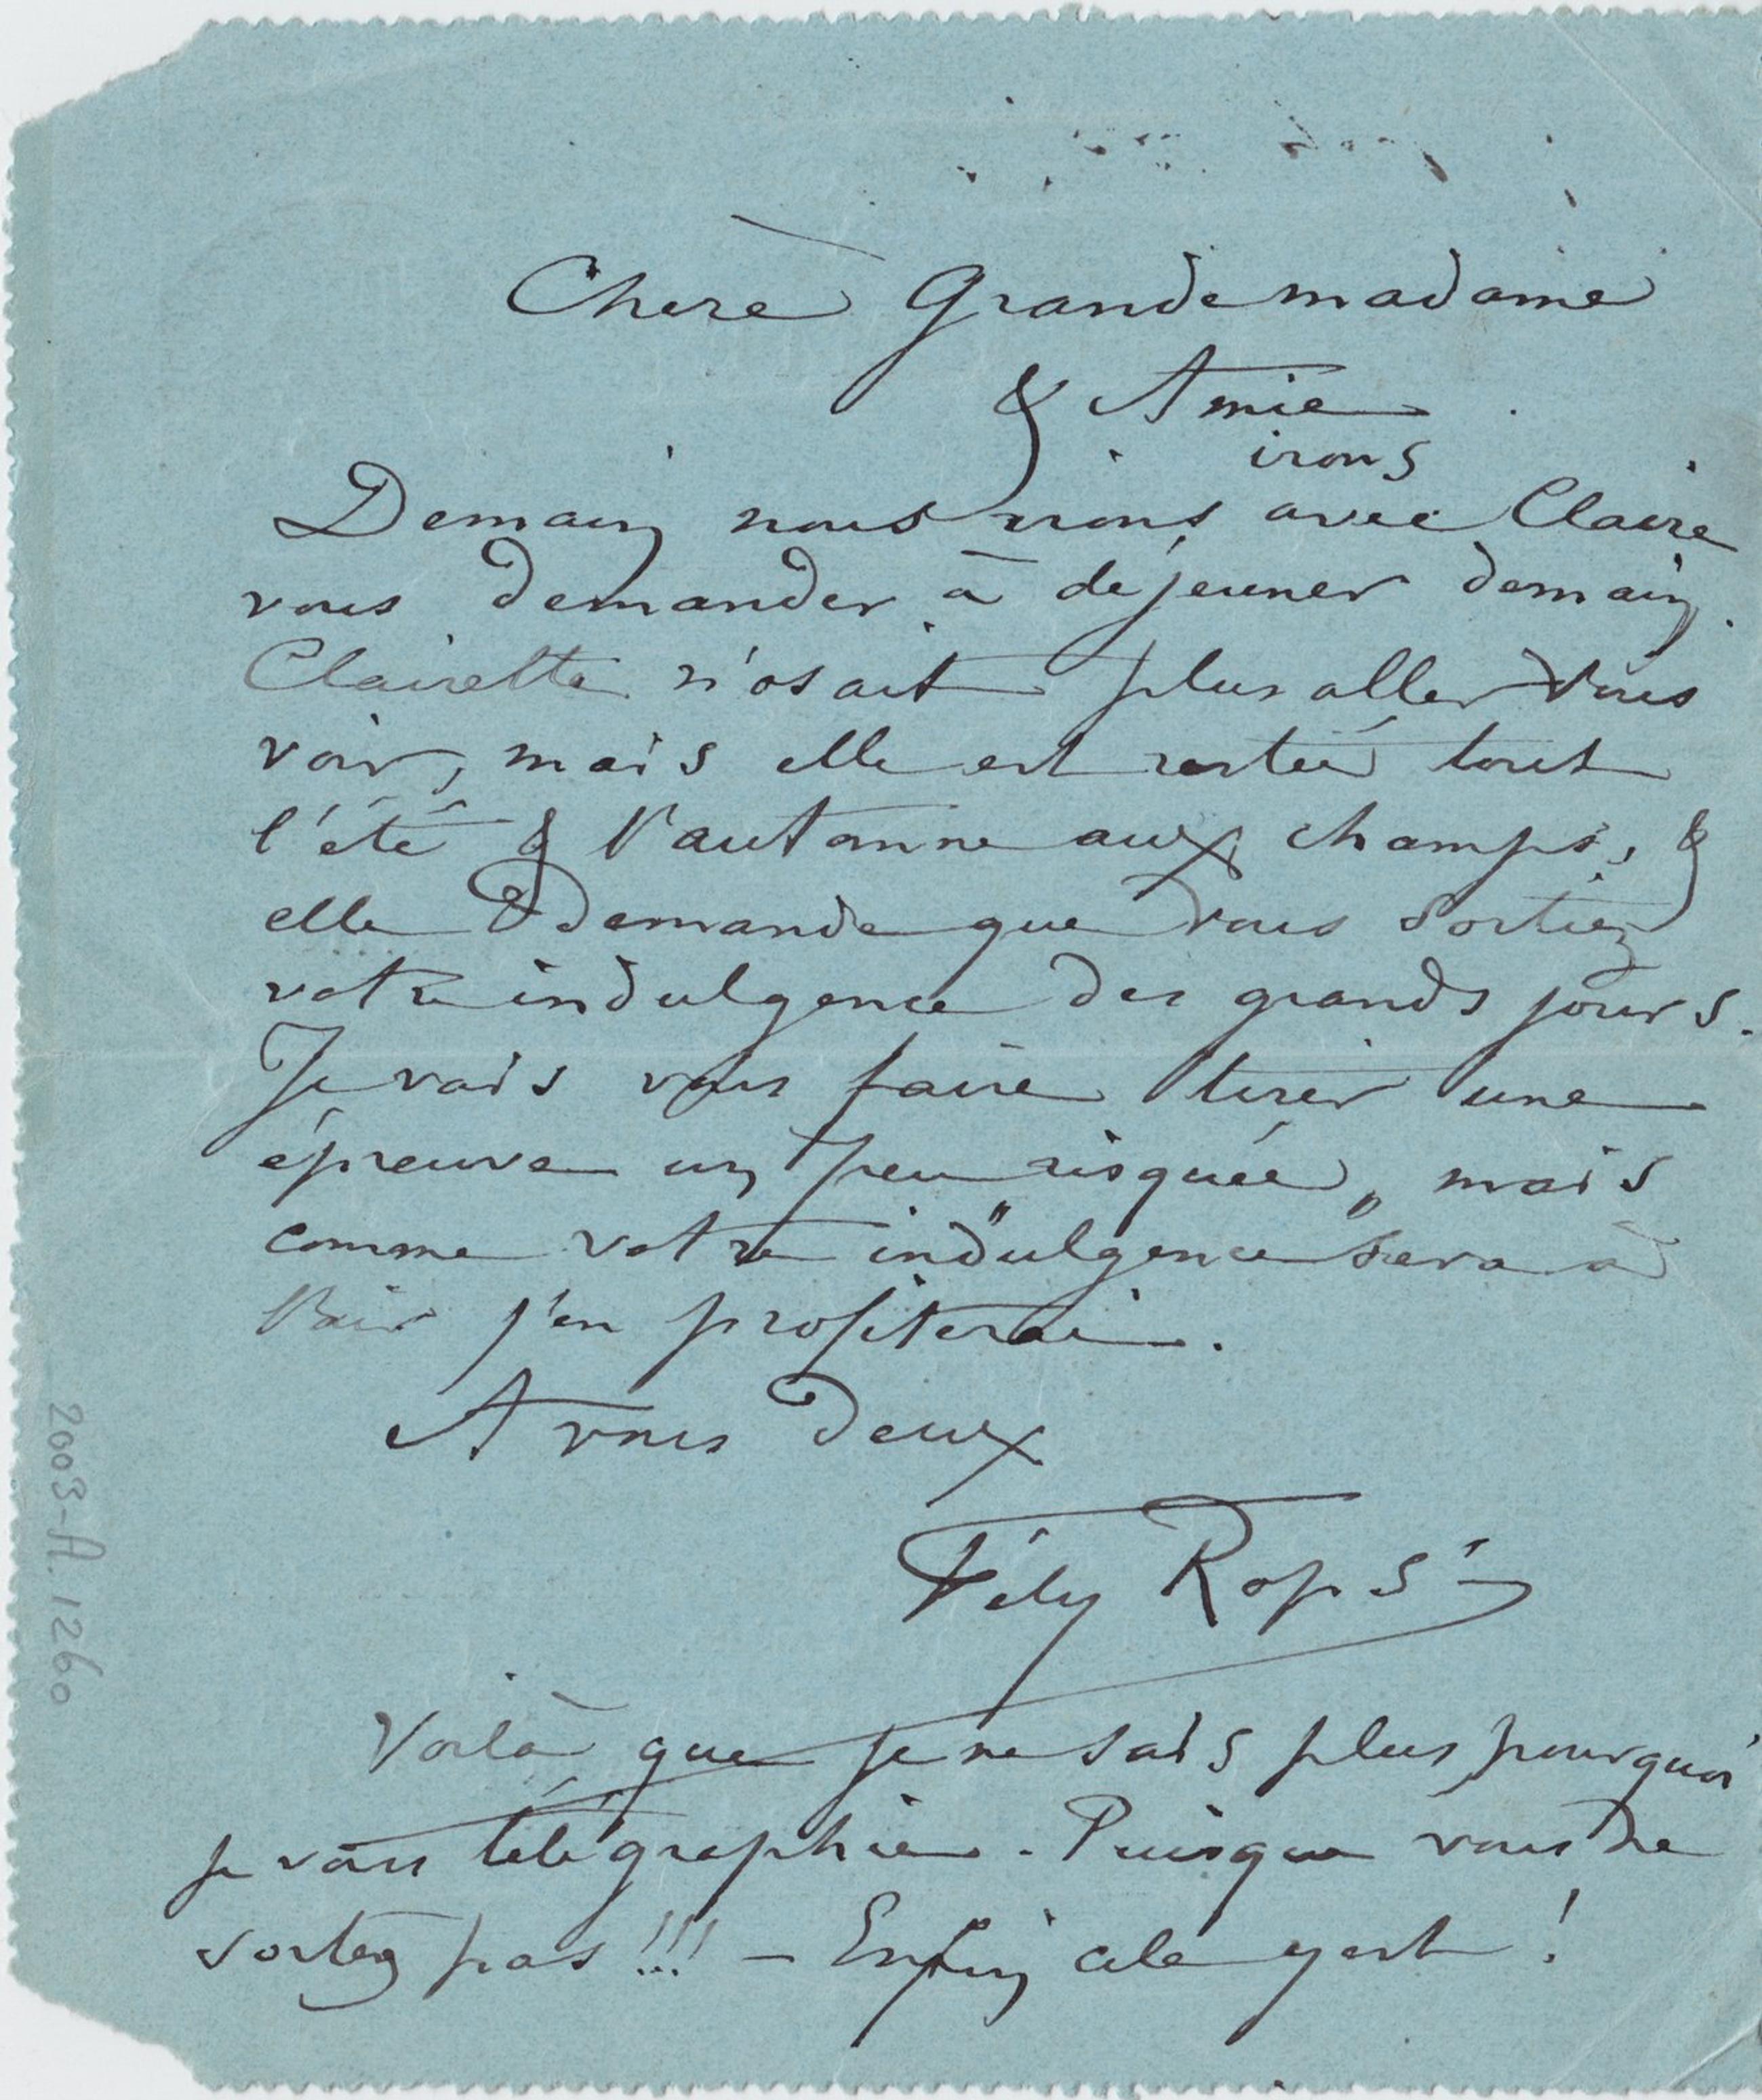 Chère Grande madame
& Amie
irons
Demain nous irons avec Claire
vous demander à dejeuner demain.
Clairette n'osait plus aller vous
voir, mais elle est restée tout
l'été & l'automne aux champs, &
elle demande que vous sortiez
votre indulgence des grands jours.
Je vais vous faire tirer une
épreuve un peu risquée, mais
comme votre "indulgence" sera à
l'air j'en profiterai.
A vous deux
Fély Rops
Voilà que je ne sais plus pourquoi
je vous télégraphie. Puisque vous ne
sortez pas !!! – Enfin cela y est !
2003-A.1260